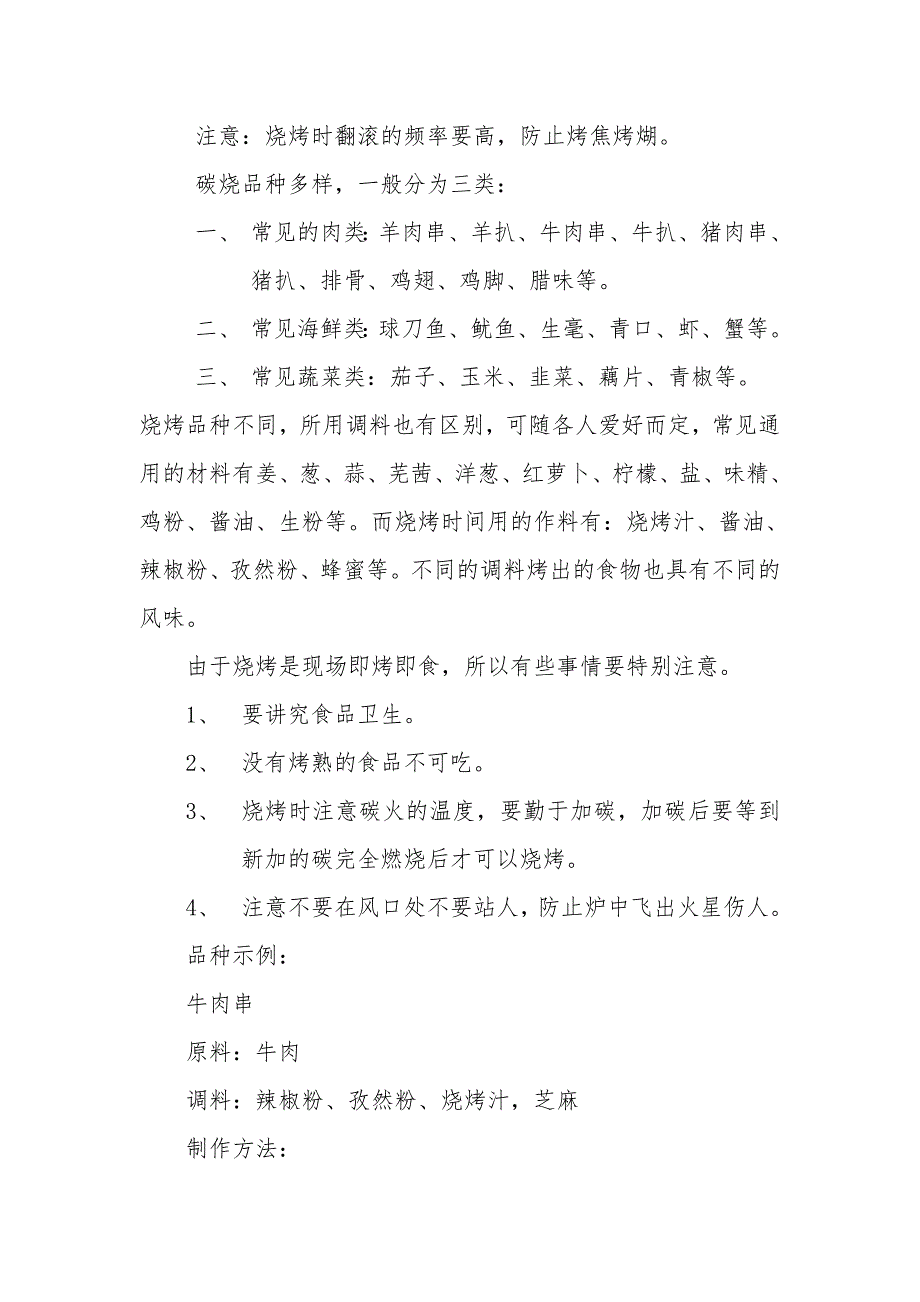 注意：烧烤时翻滚的频率要高，防止烤焦烤煳。
碳烧品种多样，一般分为三类：
一、 常见的肉类：羊肉串、羊扒、牛肉串、牛扒、猪肉串、
猪扒、排骨、鸡翅、鸡脚、腊味等。
二、 常见海鲜类：球刀鱼、鱿鱼、生毫、青口、虾、蟹等。
三、 常见蔬菜类：茄子、玉米、韭菜、藕片、青椒等。
烧烤品种不同，所用调料也有区别，可随各人爱好而定，常见通
用的材料有姜、葱、蒜、芫茜、洋葱、红萝卜、柠檬、盐、味精、
鸡粉、酱油、生粉等。而烧烤时间用的作料有：烧烤汁、酱油、
辣椒粉、孜然粉、蜂蜜等。不同的调料烤出的食物也具有不同的
风味。
由于烧烤是现场即烤即食，所以有些事情要特别注意。
1、 要讲究食品卫生。
2、 没有烤熟的食品不可吃。
3、 烧烤时注意碳火的温度，要勤于加碳，加碳后要等到
新加的碳完全燃烧后才可以烧烤。
4、 注意不要在风口处不要站人，防止炉中飞出火星伤人。
品种示例：
牛肉串
原料：牛肉
调料：辣椒粉、孜然粉、烧烤汁，芝麻
制作方法：